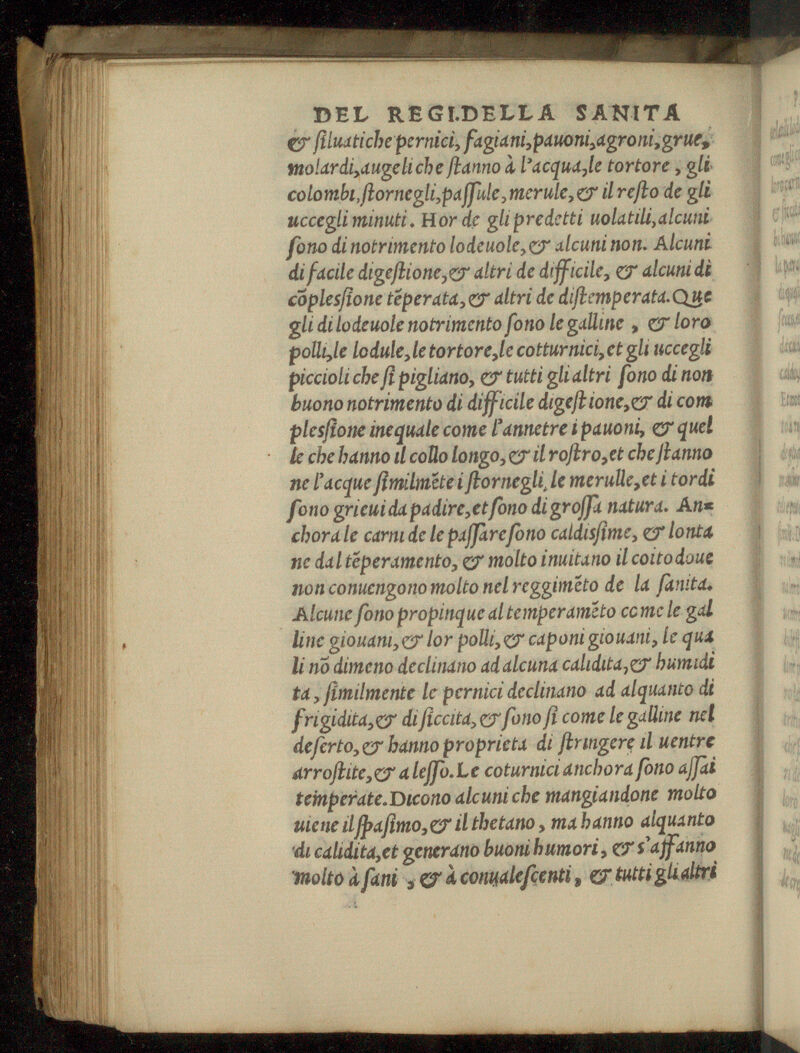 DEL REGI.DELLA SANITA
& ſiluatiche pernici, fagiani,pauoni,agroni,grue,
molardi,augeli che ſtanno à l'acqua,le tortore , gli
colombi,ſtornegli,paſſule, merule, & il reſto de gli
uccegli minuti. Hor de gli predetti uolatili,alcuni
ſono di notrimento lodeuole, & alcuni non. Alcuni
di facile digeſtione,& altri de difficile, & alcuni di
cōplesſione tēperata, & altri de diſtemperata.Que
gli di lodeuole notrimento ſono le galline , & loro
polli,le lodule,le tortore,le cotturnici, et gli uccegli
piccioli che ſi pigliano, & tutti gli altri ſono di non
buono notrimento di difficile digeſtione,& di com
plesſione inequale come l'annetre i pauoni, & quel
le che hanno il collo longo, & il roſtro,et che ſtanno
ne l'acque ſimilmēte i ſtornegli, le merulle,et i tordi
ſono grieui da padire,et ſono di groſſa natura. An=
chora le carni de le paſſare ſono caldisſime, & lonta
ne dal tēperamento, & molto inuitano il coito doue
non conuengono molto nel reggimēto de la ſanita.
Alcune ſono propinque al temperamēto come le gal
line giouani, & lor polli, & caponi giouani, le qua
li nō dimeno declinano ad alcuna calidita,& humidi
ta, ſimilmente le pernici declinano ad alquanto di
frigidita,& di ſiccita, & ſono ſi come le galline nel
deſerto, & hanno proprieta di ſtringere il uentre
arroſtite,& a leſſo.Le coturnici anchora ſono aſſai
temperate.Dicono alcuni che mangiandone molto
uiene il ſpaſimo,& il thetano , ma hanno alquanto
di calidita,et generano buoni humori, & s'affanno
molto à ſani , & à conualeſcenti , & tutti gli altri